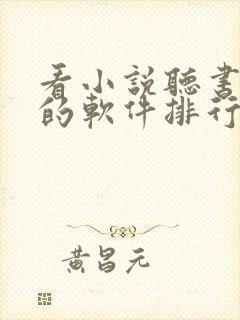 看小説聽書
的軟件排行
黃昌元